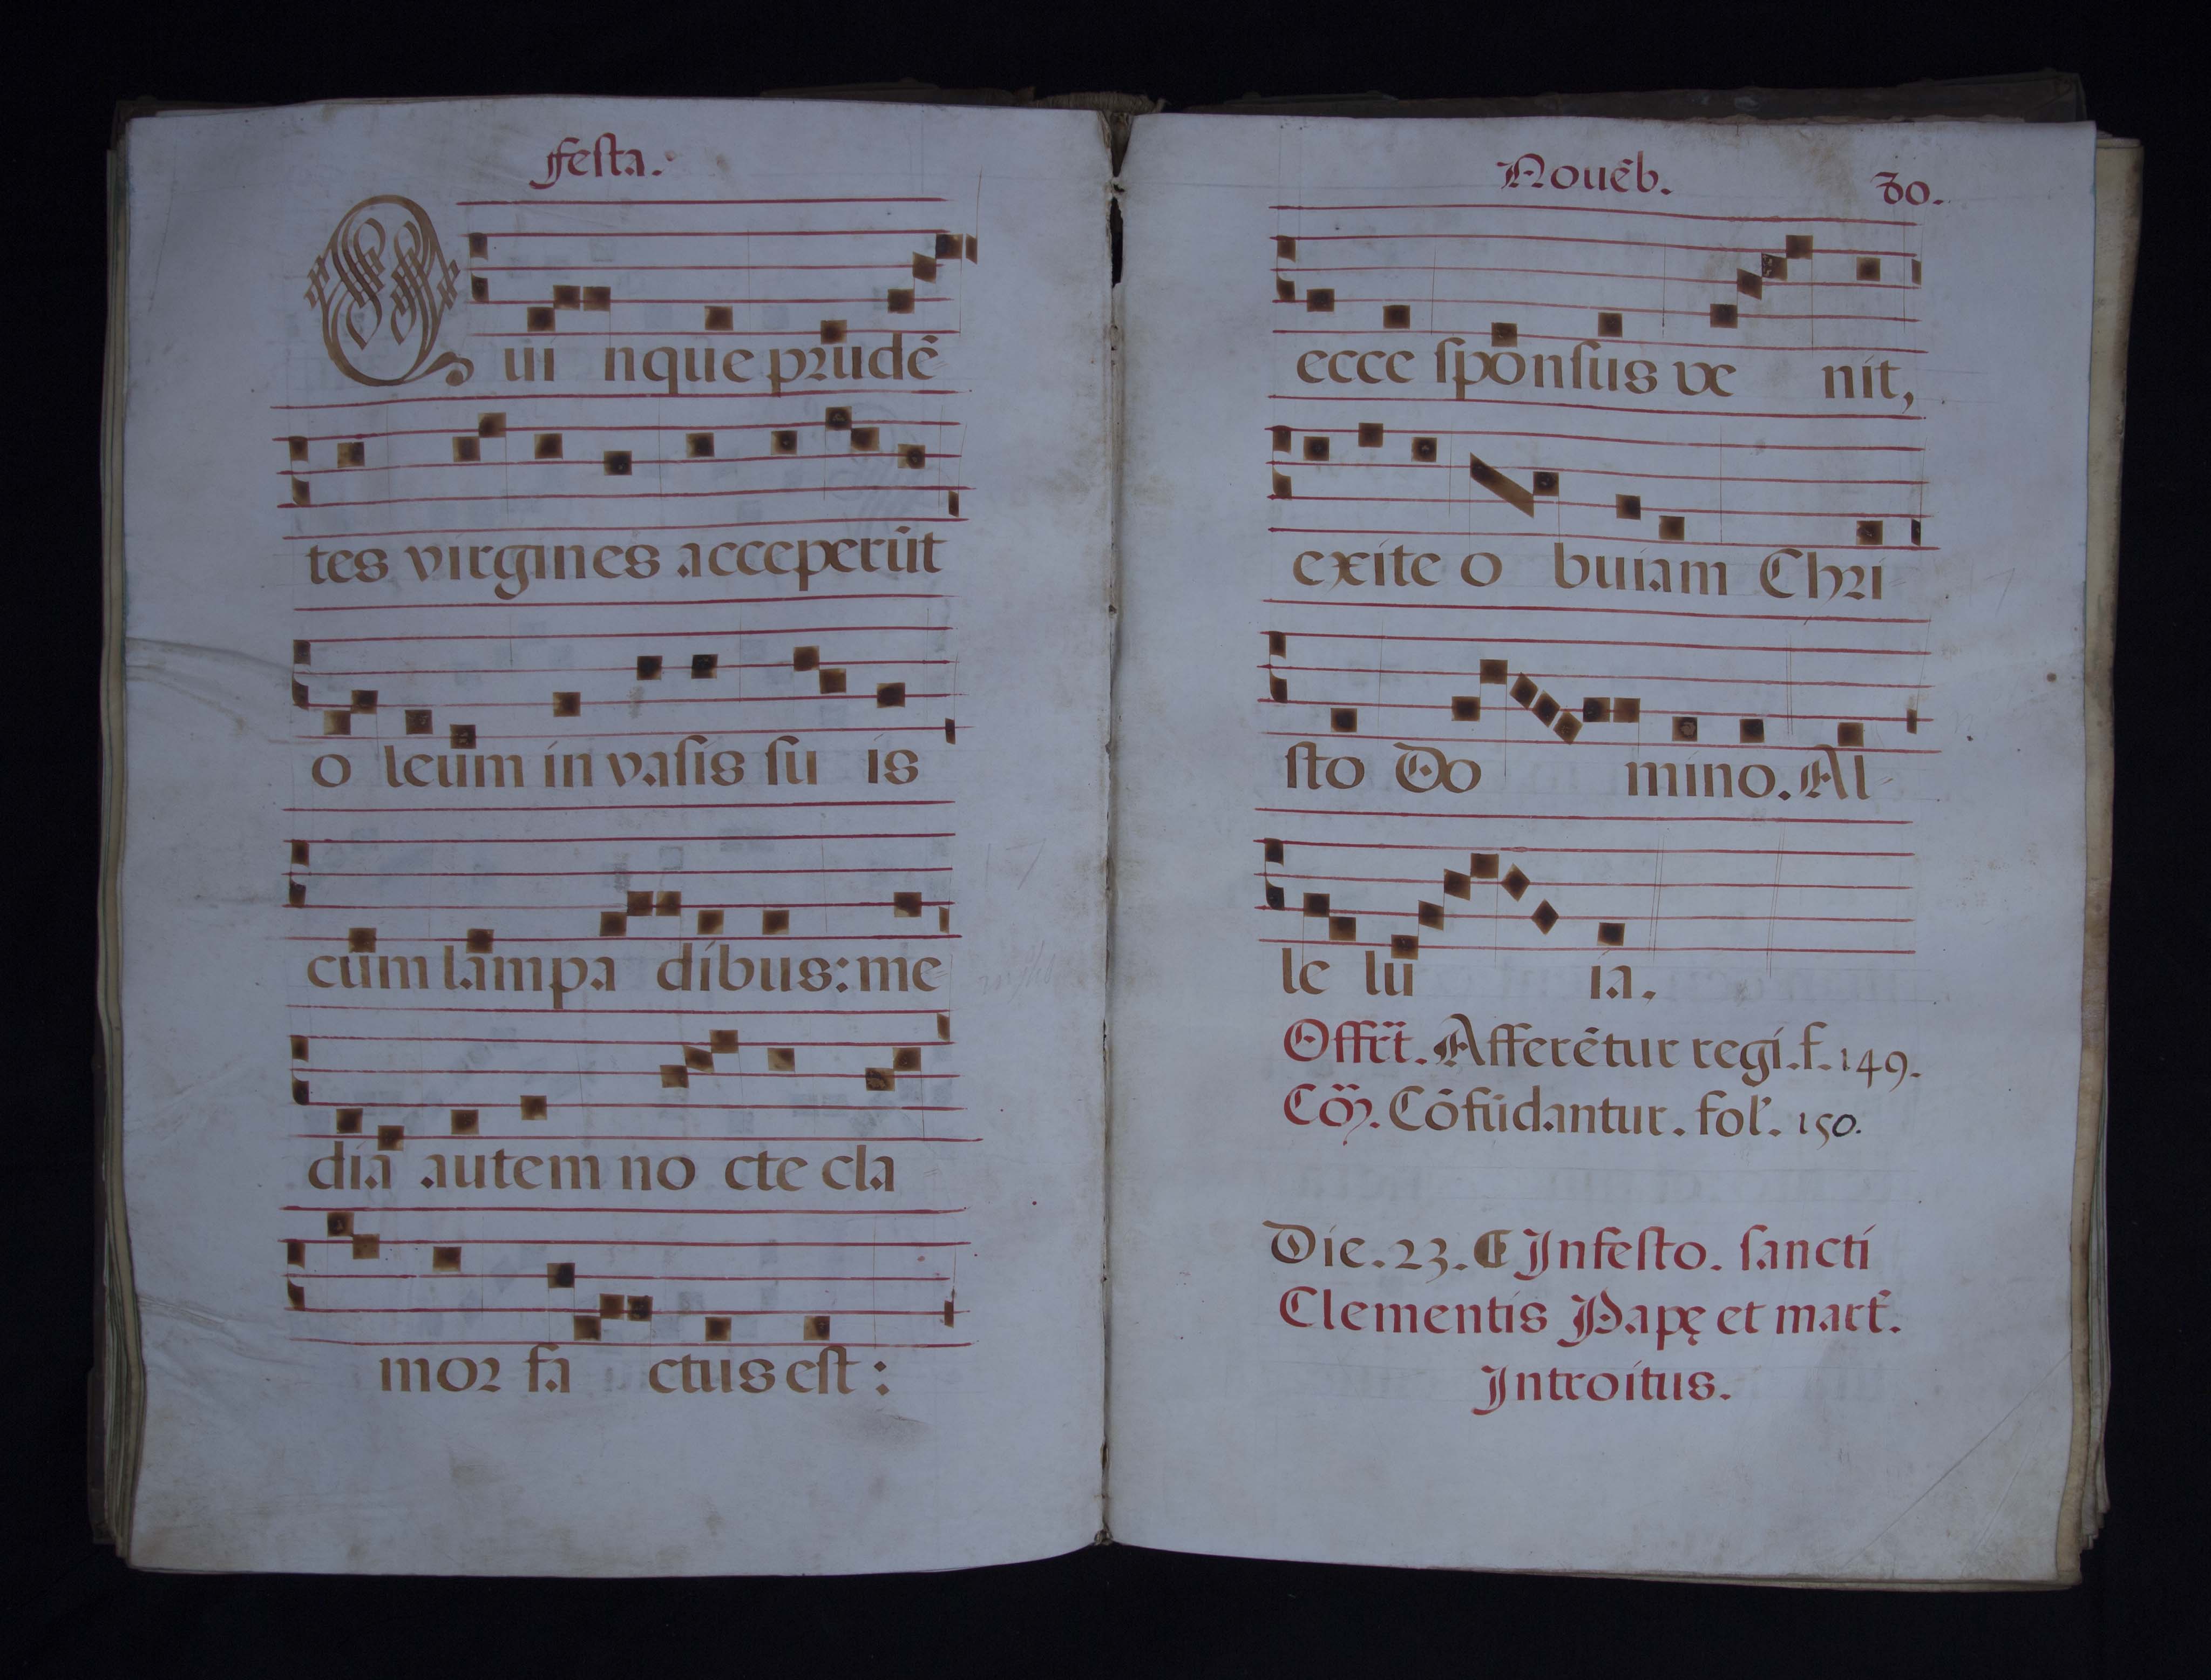 Festa.
Qui nque prudē
tes virgines acceperūt
o leum in vasis su is
cum lampa dibus: me
dia autem no cte cla
mor fa ctus est :
Nouēb. 80.
ecce sponsus ve nit,
exite o buiam Chri
sto Do mino. Al
le lu ia.
Offit. Afferētur regi. f. 149.
Cō. Cōfūdantur. fol. 150.
Die. 23. ¶ In festo. sancti
Clementis Papę et mart.
Introitus.